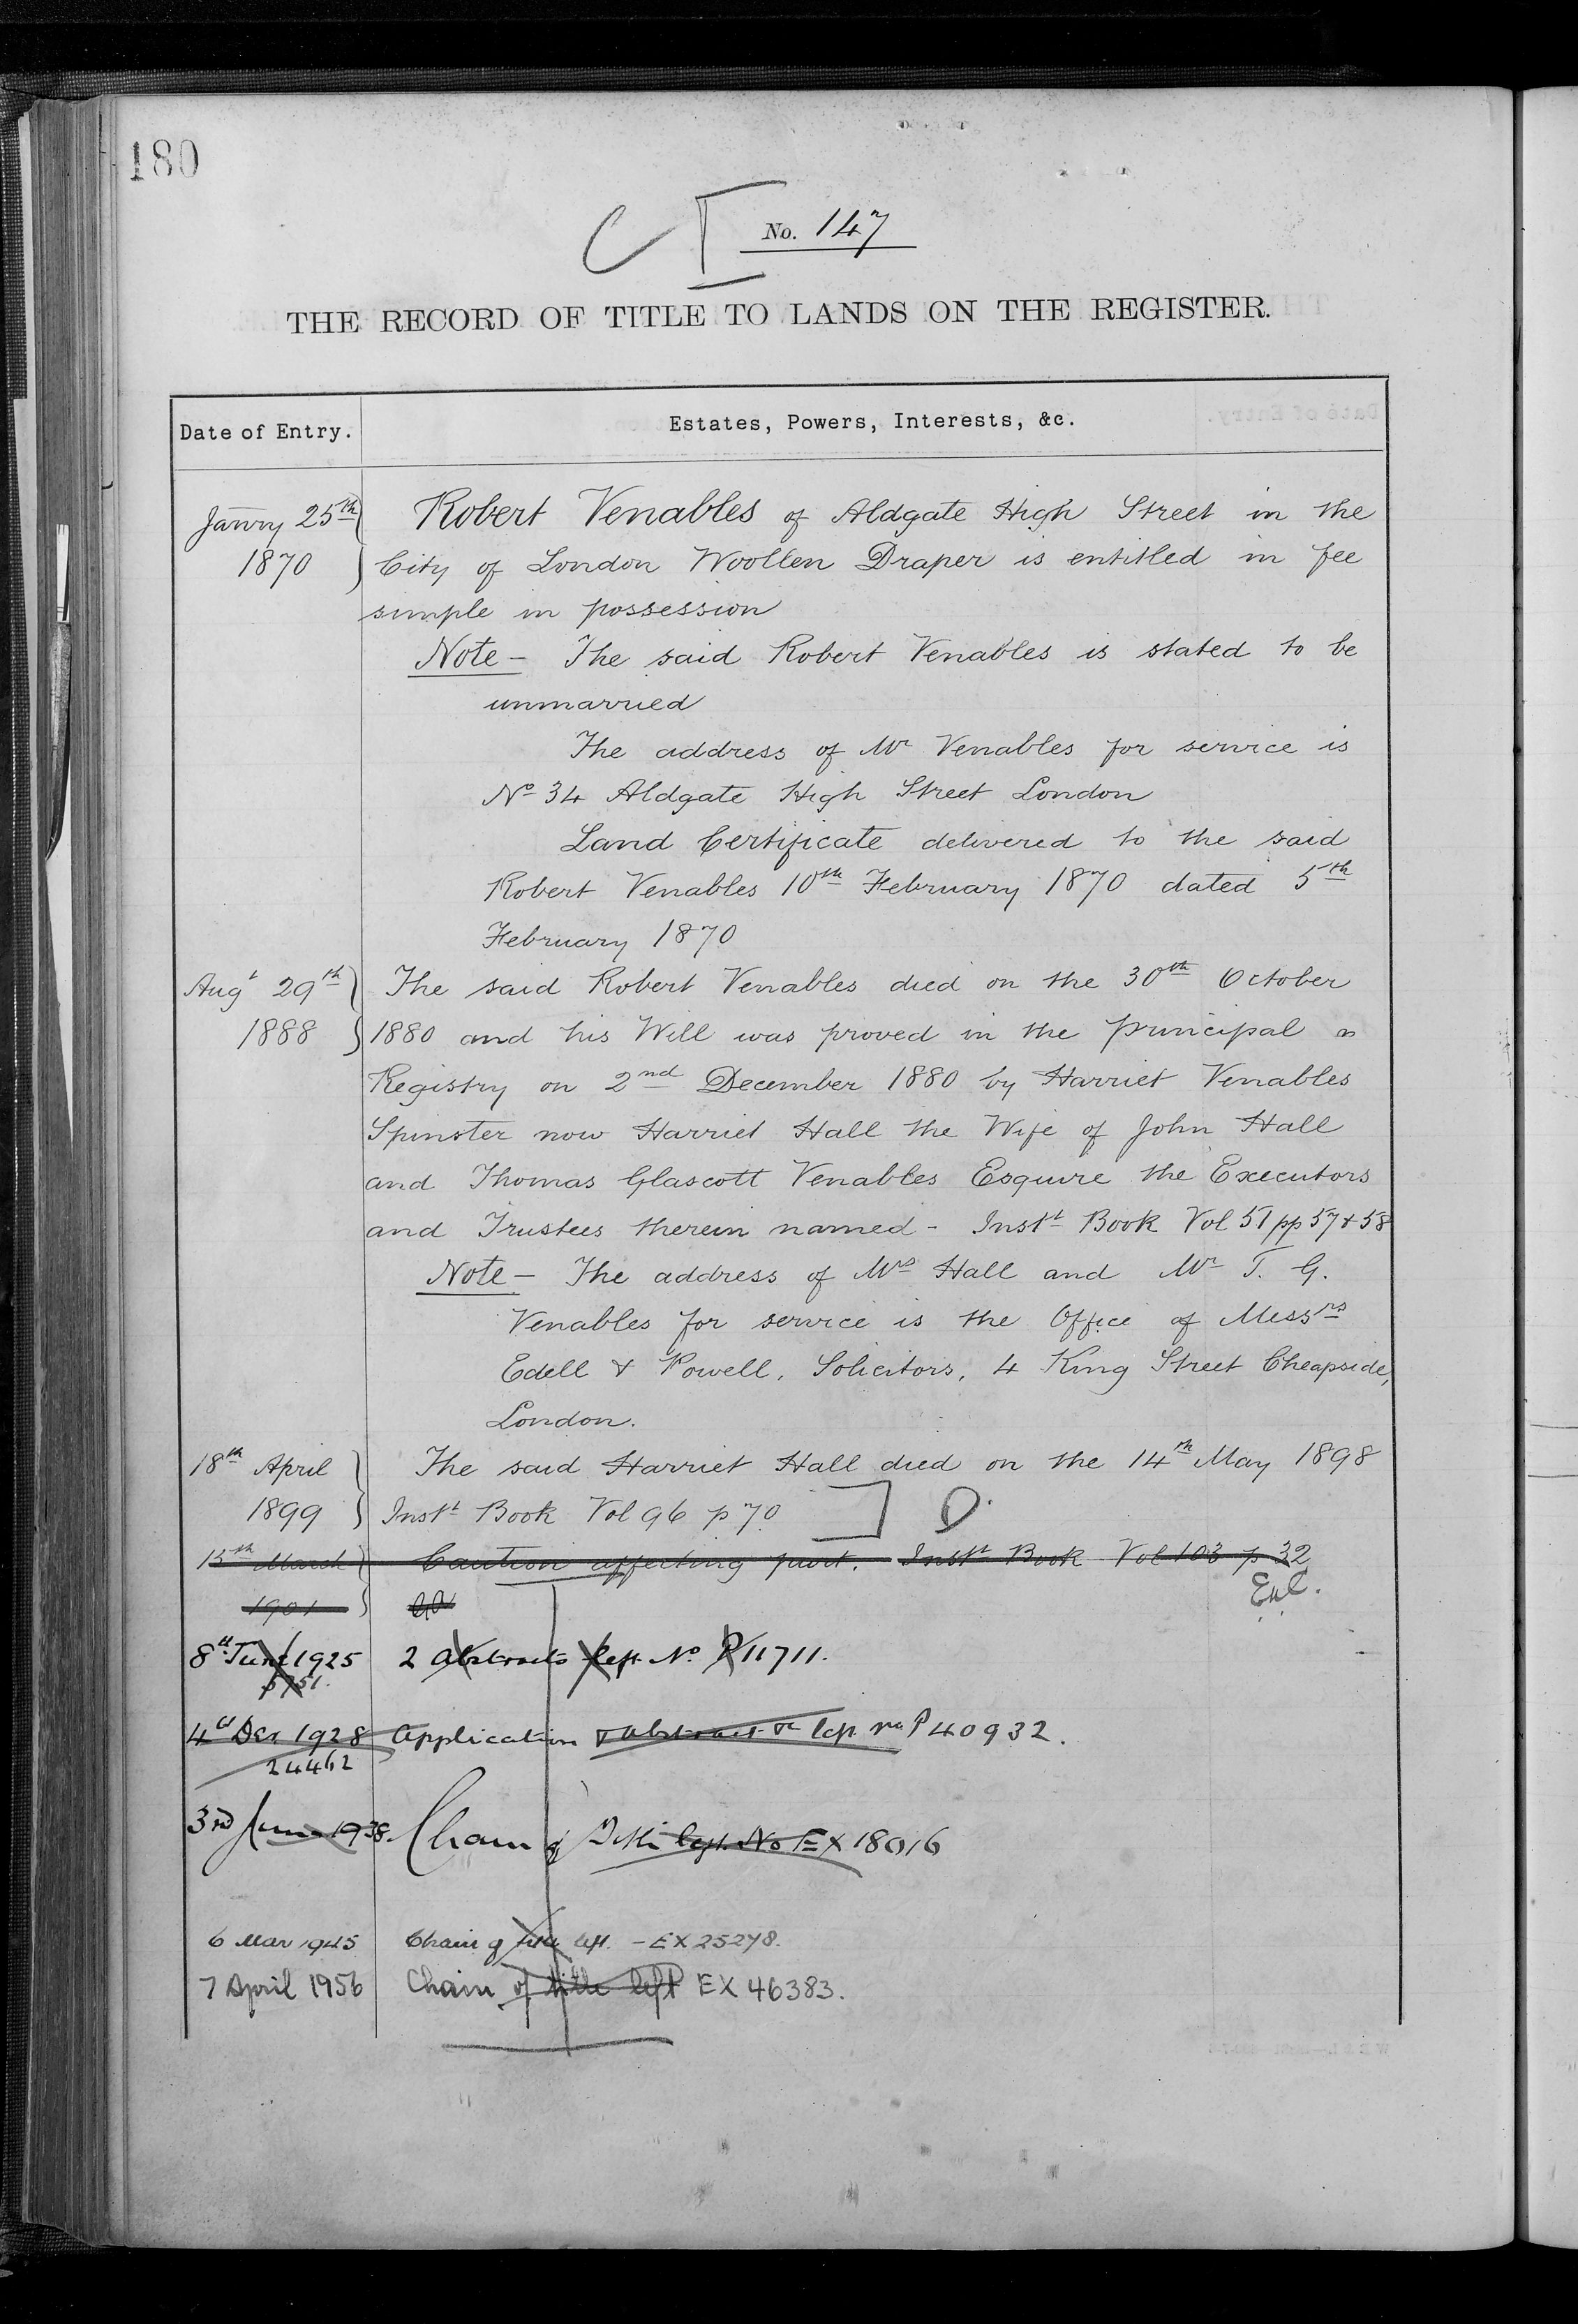 180
No. 147
THE RECORD OF TITLE TO LANDS ON THE REGISTER.
Date of Entry. Estates, Powers, Interests, &c.
Janry 25th Robert Venables of Aldgate High Street in the
1870 City of London Woollen Draper is entitled in fee
simple in possession
Note – The said Robert Venables is stated to be
unmarried
The address of Mr Venables for service is
No 34 Aldgate High Street London
Land Certificate delivered to the said
Robert Venables 10th February 1870 dated 5th
February 1870
Augt 29th The said Robert Venables died on the 30th October
1888 1880 and his Will was proved in the principal
Registry on 2nd December 1880 by Harriet Venables
Spinster now Harriet Hall the Wife of John Hall
and Thomas Glascott Venables Esquire the Executors
and Trustees therein named - Instt Book Vol 51 pp 57 & 58
Note – The address of Mrs Hall and Mr T. G.
Venables for service is the Office of Messrs
Edell & Powell, Solicitors, 4 King Street Cheapside,
London.
18th April The said Harriet Hall died on the 14th May 1898
1899 Instt Book Vol 96 p 70 D.
15th March Caution affecting part. Instt Book Vol 103 p 32
1901
8th June 1925 2 Abstracts left No P 11711.
5751.
4th Dec 1928 Application & abstract left No P 40932.
24462
3rd June 1938. Chain of Title left. No EX 18016
6 Mar 1945 Chain of title left. – EX 25278.
7 April 1956 Chain of title left EX 46383.